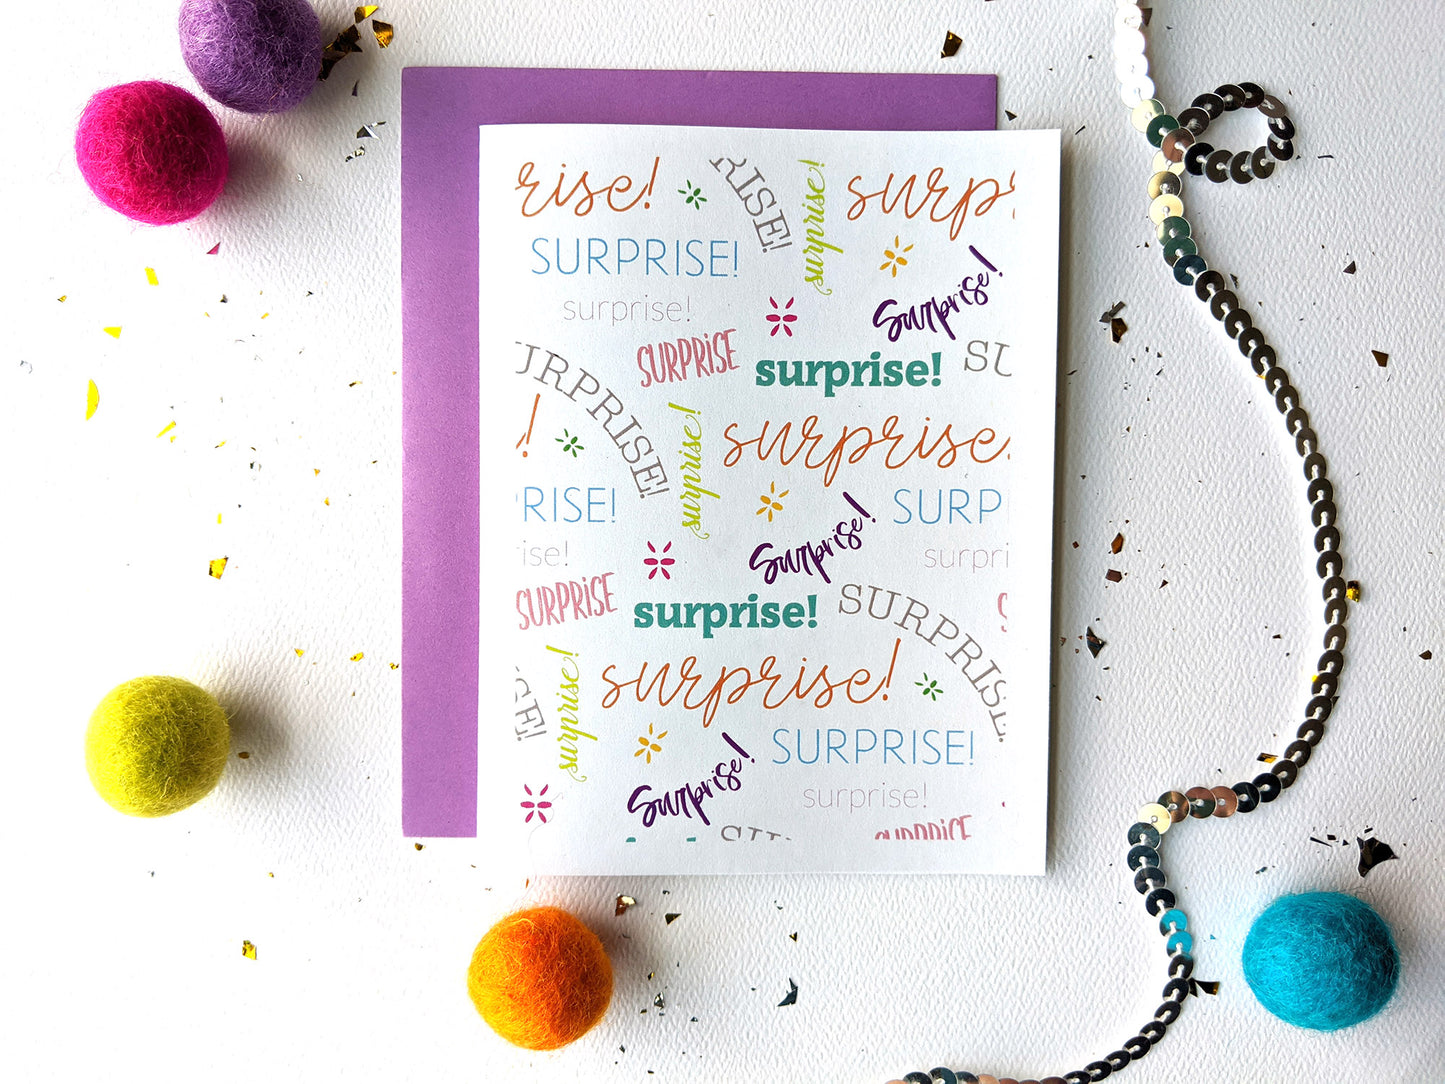 rise!
RISE!
surprise!
surp
SURPRISE!
surprise!
Surprise!
SURPRiSE
surprise!
SU
URPRISE!
!
surprise!
surprise
RISE!
ise!
Surprise!
SURP
surpri
SURPRiSE
surprise!
SURPRISE
surprise!
surprise!
SE!
Surprise!
SURPRISE!
surprise!
SU
SURPRiSE